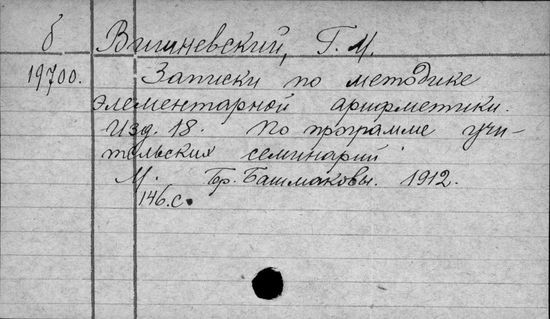 б Вишневский, Г. М.
19700. Записки по методике
элементарной арифметики.
Изд. 18. По программе учи-
тельских семинарий
М. Бр. Башмаковы. 1912.
146.с.